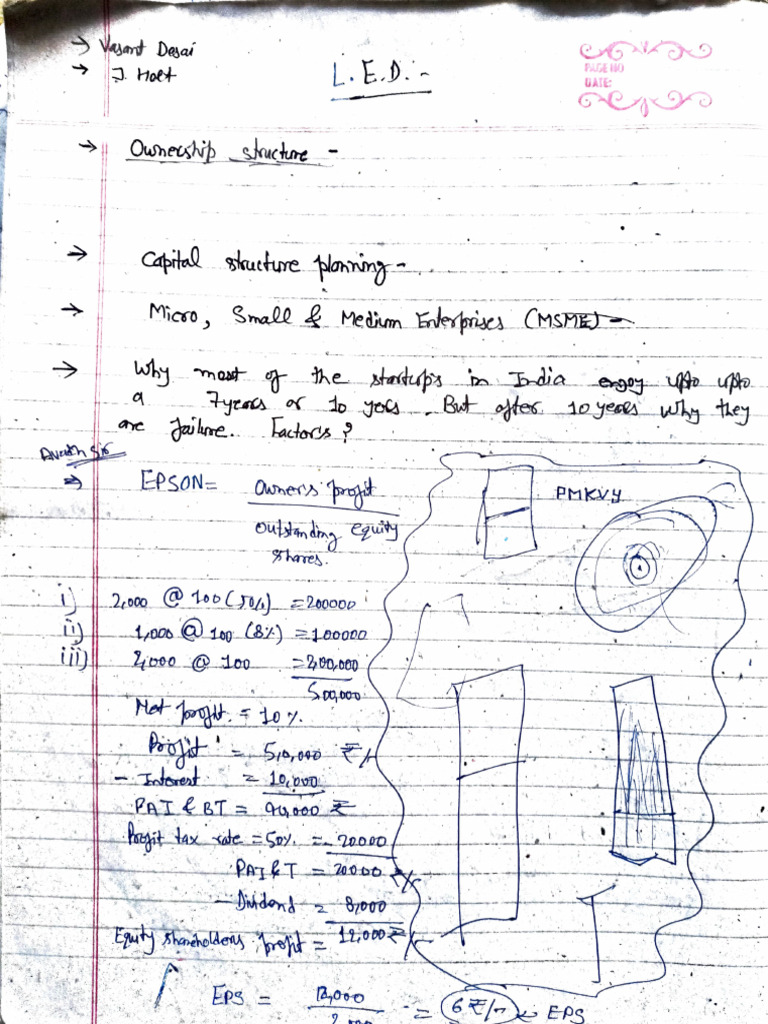 → Vasant Desai
→ J. Holt
L.E.D. -
PAGE NO
DATE:
→ Ownership structure -
→ Capital structure planning -
→ Micro, Small & Medium Enterprises (MSME) -
→ Why most of the startup's in India enjoy upto upto
a 7 years or 10 yers. But after 10 years why they
are failure. Factor's?
→ EPSON = Owner's profit
outstanding equity
shares.
PMKVY
i) 2,000 @ 100 (5%) = 200000
ii) 1,000 @ 100 (8%) = 100000
iii) 2,000 @ 100 = 200,000
500,000
Net profit = 10%.
Profit = 50,000 ₹/-
- Interest = 10,000
PAI & BT = 40,000 ₹
Profit tax rate = 50% = -20000
PAI & T = 20000 ₹/-
- Dividend = 8,000
Equity shareholders profit = 12,000 ₹/-
EPS = 12,000 = 6 ₹/- ← EPS
2,000